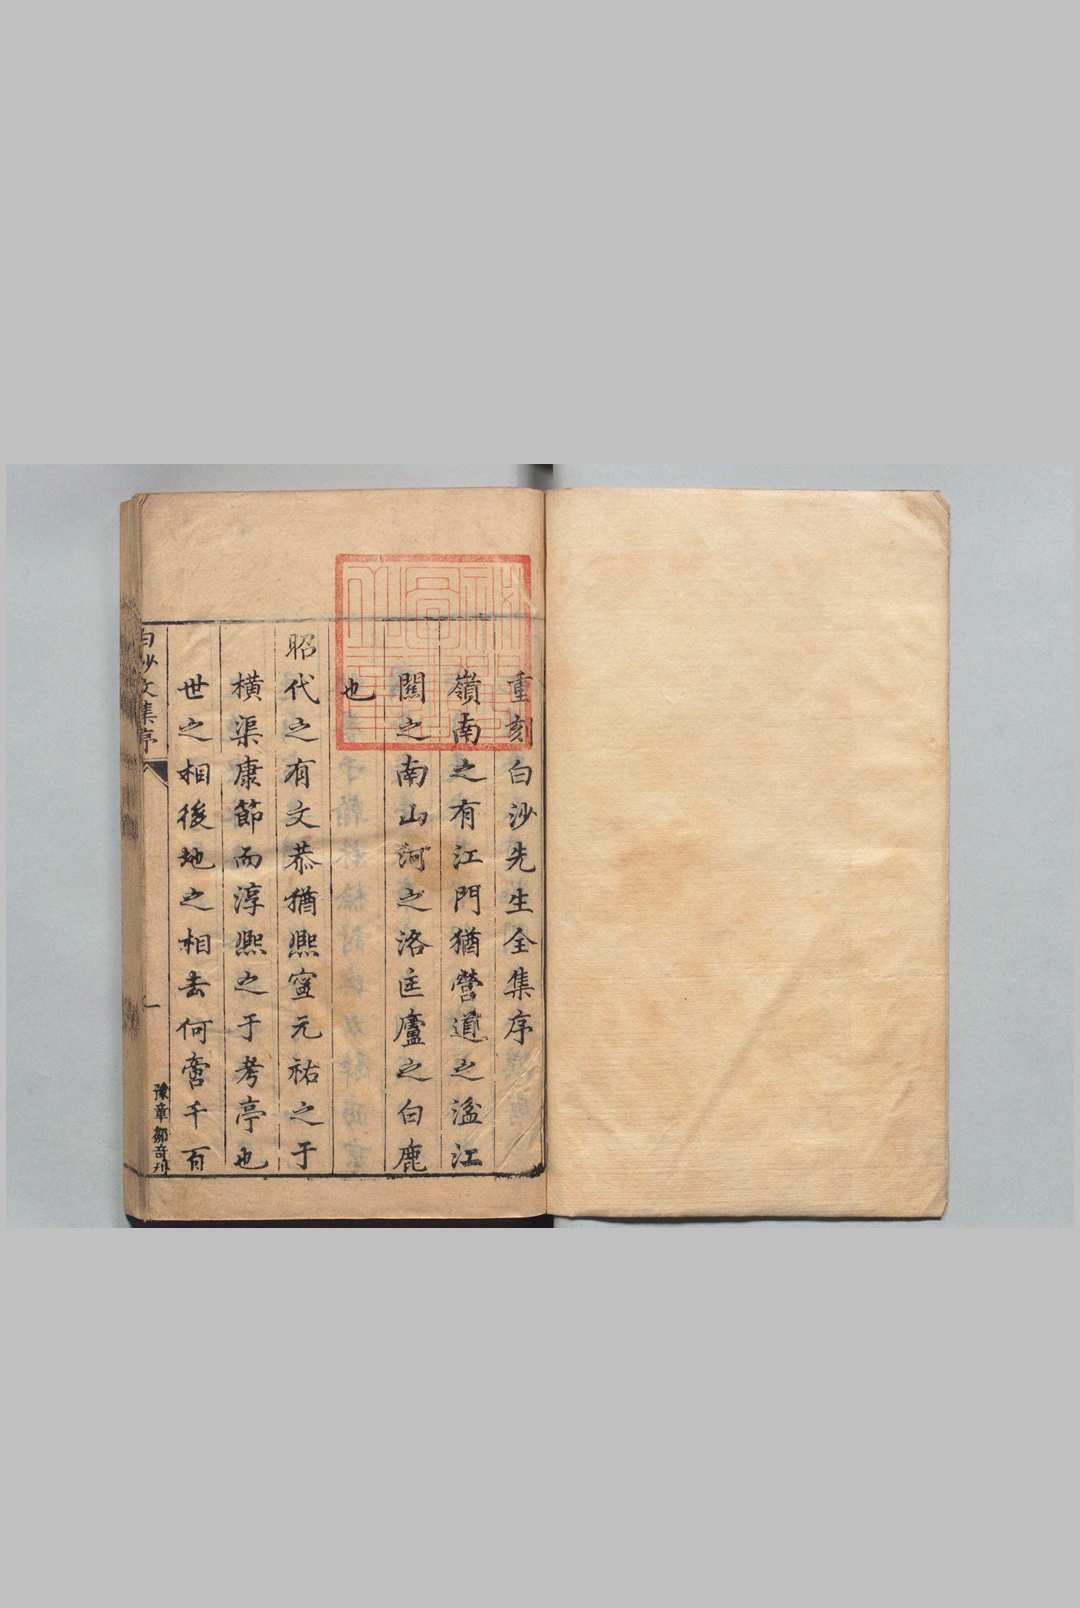 重刻白沙先生全集序
嶺南之有江門猶營道之湓江
關之南山河之洛匡廬之白鹿
也
昭代之有文恭猶熈寧元祐之于
橫渠康節而淳熈之于考亭也
世之相後地之相去何啻千百
白沙文集序
一
豫章鄒奇刋